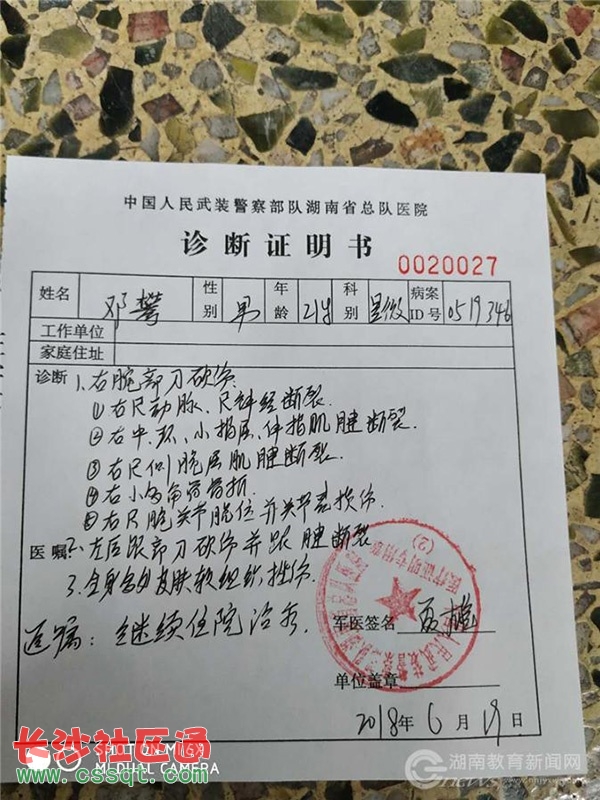 中国人民武装警察部队湖南省总队医院
诊断证明书
0020027
姓名 邓攀 性别 男 年龄 21岁 科别 显微 病案ID号 0519346
工作单位
家庭住址
诊断 1.右腕部刀砍伤:
①右尺动脉、尺神经断裂.
②右中.环、小指屈、伸指肌腱断裂.
③右尺侧腕屈肌腱断裂.
④右小多角骨骨折.
⑤右尺腕关节脱位并关节囊损伤
2.左后跟部刀砍伤并跟腱断裂
3.全身多处皮肤软组织挫伤.
医嘱
医嘱:继续住院治疗.
军医签名
单位盖章
2018年6月19日
医疗证明专用章
(2)
长沙社区通
www.cssqt.com
SHOT ON MI 6X
MI DUAL CAMERA
湖南教育新闻网
news